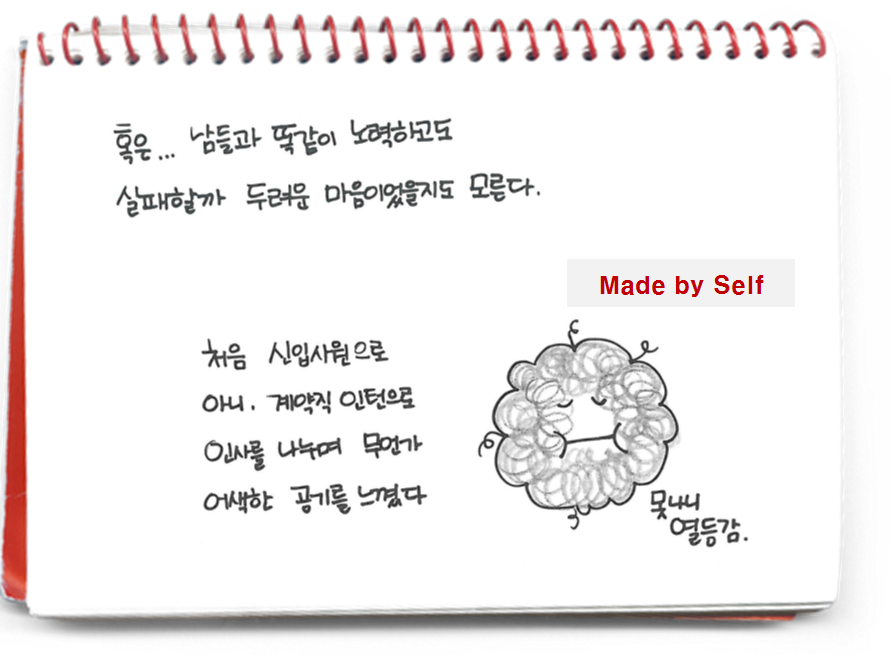 혹은... 남들과 똑같이 노력하고도
실패할까 두려운 마음이었을지도 모른다.
Made by Self
처음 신입사원으로
아니. 계약직 인턴으로
인사를 나누며 무언가
어색한 공기를 느꼈다
못나니
열등감.